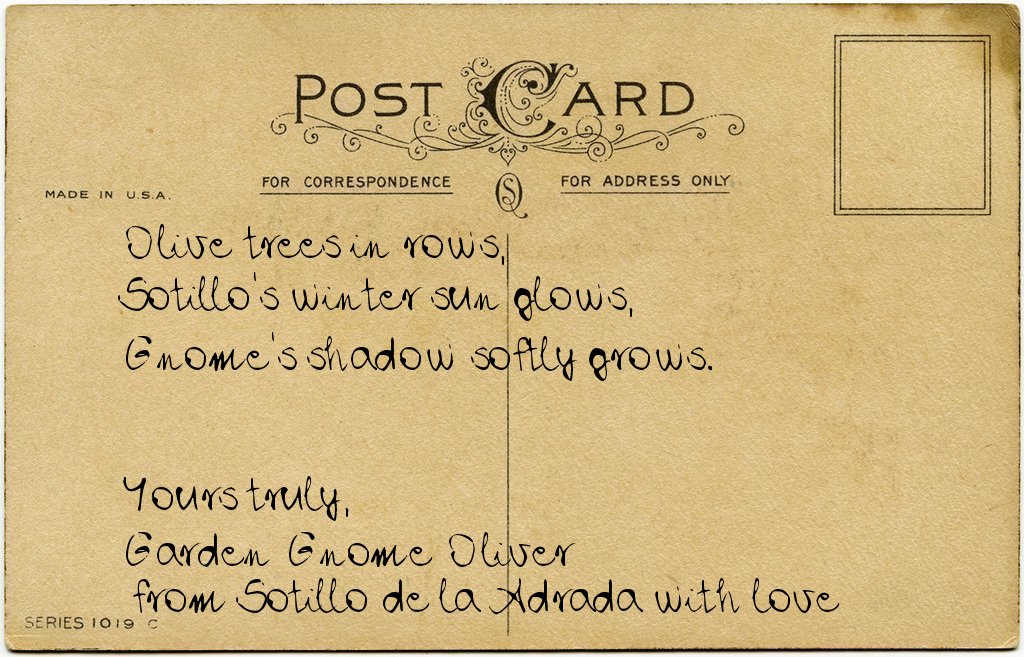 POST CARD
FOR CORRESPONDENCE
FOR ADDRESS ONLY
MADE IN U.S.A.
Olive trees in rows,
Sotillo's winter sun glows,
Gnome's shadow softly grows.
Yours truly,
Garden Gnome Oliver
from Sotillo de la Adrada with love
SERIES 1019 C